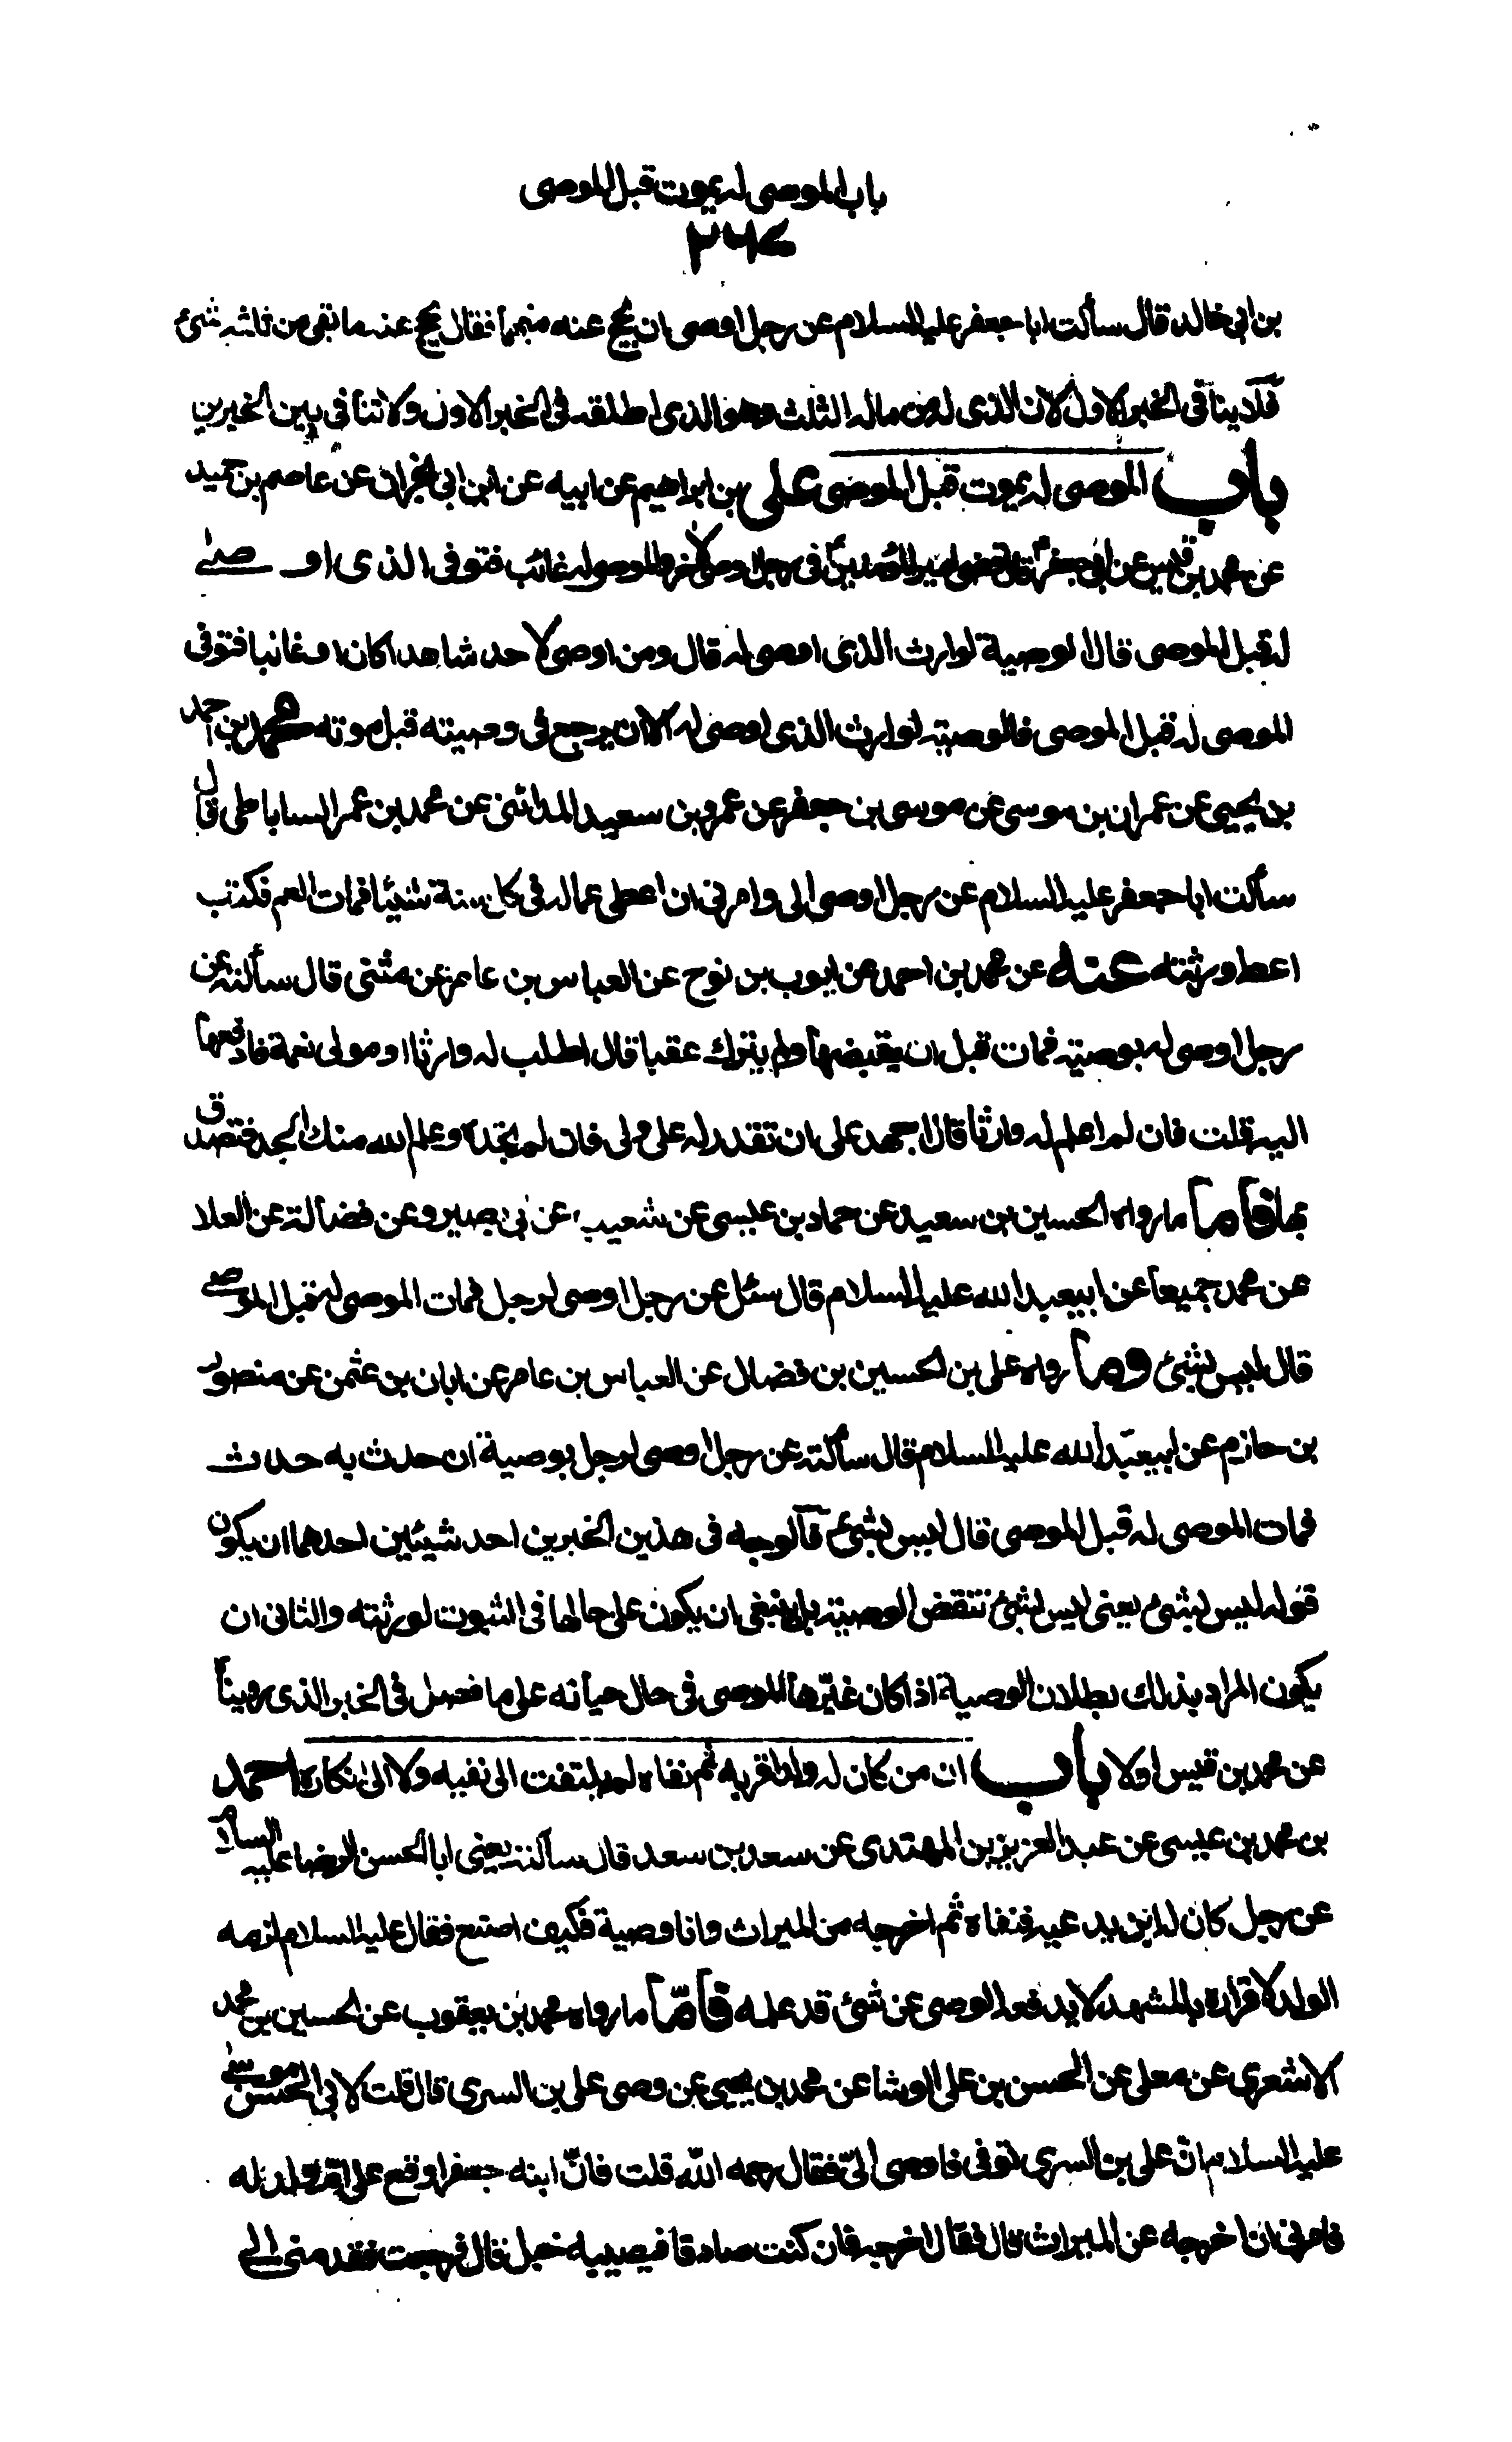 باب الموصى له يموت قبل الموصى
بن ابى خالد قال سألت ابا جعفر عليه السلام عن رجل اوصى ان يحج عنه مبهما فقال يحج عنه ما بقى من ثلثه شئ
فلا ينافى الخبر الاول لان الذى له من ماله الثلث وهو الذى اطلقه فى الخبر الاول ولا تنافى بين الخبرين
باب الموصى له يموت قبل الموصى على بن ابراهيم عن ابيه عن ابن ابى نجران عن عاصم بن حميد
عن محمد بن قيس عن ابى جعفر قال قضى امير المؤمنين فى رجل اوصى لآخر والموصى له غائب فتوفى الذى اوصى
له قبل الموصى قال الوصية لوارث الذى اوصى له قال ومن اوصى لاحد شاهدا كان او غائبا فتوفى
الموصى له قبل الموصى فالوصية لوارث الذى اوصى له الا ان يرجع فى وصيته قبل موته محمد بن احمد
بن يحيى عن عمران بن موسى عن موسى بن جعفر عن عمرو بن سعيد المدائنى عن محمد بن عمر الساباطى قال
سألت ابا جعفر عليه السلام عن رجل اوصى الى وامرنى ان اعطى عما له فى كل سنة شيئا فمات العم فكتب
اعط ورثته عنه عن محمد بن احمد عن ايوب بن نوح عن العباس بن عامر عن مثنى قال سألته عن
رجل اوصى له بوصية فمات قبل ان يقبضها ولم يترك عقبا قال اطلب له وارثا او مولى نعمة فادفعها
اليه قلت فان لم اعلم له وارثا قال اجهد على ان تقدر له على ولى فان لم تجده وعلم الله منك الجد فتصدق
بها فاما ما رواه الحسين بن سعيد عن حماد بن عيسى عن شعيب عن ابى بصير وعن فضالة عن العلا
عن محمد جميعا عن ابيعبد الله عليه السلام قال سئل عن رجل اوصى لرجل فمات الموصى له قبل الموصى
قال ليس بشئ وما رواه على بن الحسين بن فضال عن العباس بن عامر عن ابان بن عثمن عن منصور
بن حازم عن ابيعبد الله عليه السلام قال سألته عن رجل اوصى لرجل بوصية ان حدث به حدث
فمات الموصى له قبل الموصى قال ليس بشئ فالوجه فى هذين الخبرين احد شيئين احدهما ان يكون
قوله ليس بشئ يعنى ليس بشئ تنقض الوصية بل ينبغى ان يكون على حالها فى الثبوت لورثته والثانى ان
يكون المراد بذلك بطلان الوصية اذا كان غيّرها الموصى فى حال حياته على ما فصل فى الخبر الذى رويناه
عن محمد بن قيس اولا باب ان من كان له ولد اقر به ثم نفاه لم يلتفت الى نفيه ولا الى انكاره احمد
بن محمد بن عيسى عن عبد العزيز بن المهتدى عن سعد بن سعد قال سألته يعنى ابا الحسن الرضا عليه السلام
عن رجل كان له ابن يدعيه فنفاه ثم اخرجه من الميراث وانا وصية فكيف اصنع فقال عليه السلام لزمه
الولد لاقراره بالمشهد لا يدفعه الوصى عن شئ قد علمه فامّا ما رواه محمد بن يعقوب عن الحسين بن محمد
الاشعرى عن معلى عن الحسن بن على الوشا عن محمد بن يحيى عن وصى على بن السرى قال قلت لابى الحسن موسى
عليه السلام انّ على بن السرى توفى فاوصى الىّ فقال رحمه الله قلت فانّ ابنه جعفرا وقع على ام ولد له
فامرنى ان اخرجه عن الميراث قال فقال اخرجه فان كنت صادقا فيصيبه خبل قال فرجعت فقدمنى الى